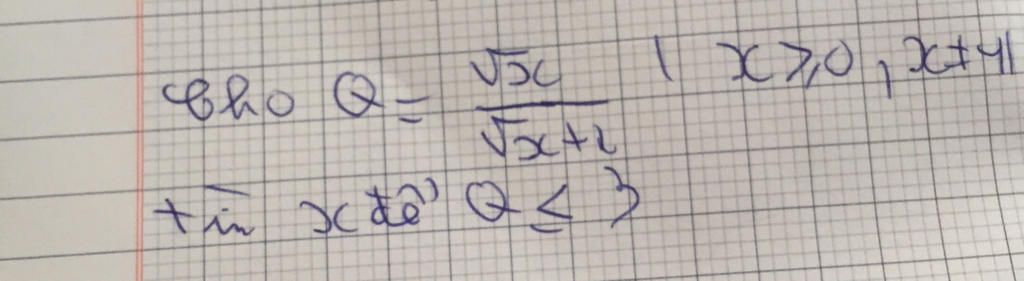 Cho Q = \frac{\sqrt{x}}{\sqrt{x}+2} ( x ≥ 0, x ≠ 4)
tìn x để Q ≤ 3